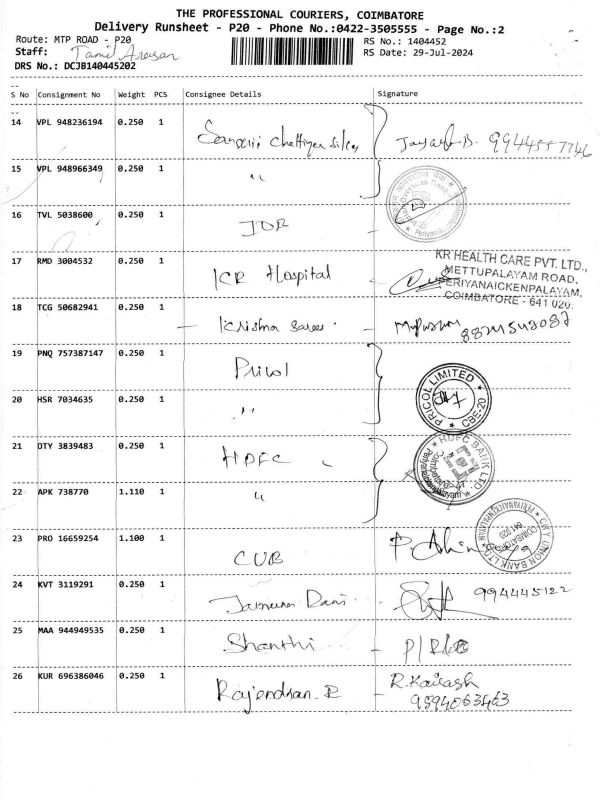 THE PROFESSIONAL COURIERS, COIMBATORE
Delivery Runsheet - P20 - Phone No.:0422-3505555 - Page No.:2
Route: MTP ROAD - P20
RS No.: 1404452
Staff: Tamil Arasan
RS Date: 29-Jul-2024
DRS No.: DCJB140445202
S No Consignment No Weight PCS Consignee Details Signature
14 VPL 948236194 0.250 1 Chettiyar
15 VPL 948966349 0.250 1 "
16 TVL 5038600 0.250 1 IOB
17 RMD 3004532 0.250 1 KR Hospital
KR HEALTH CARE PVT. LTD.,
METTUPALAYAM ROAD,
PERIYANAICKENPALAYAM,
COIMBATORE - 641 020.
18 TCG 50682941 0.250 1 - Krishna -
19 PNQ 757387147 0.250 1 Pricol
PRICOL LIMITED
CBE-20
20 HSR 7034635 0.250 1 "
21 DTY 3839483 0.250 1 HDFC
HDFC BANK LTD
22 APK 738770 1.110 1 "
23 PRO 16659254 1.100 1 CUB
CITY UNION BANK LTD
PERIYANAICKENPALAYAM
COIMBATORE
641 020
24 KVT 3119291 0.250 1 Rani - 994445122
25 MAA 944949535 0.250 1 Shanthi -
26 KUR 696386046 0.250 1 Rajendran. R - R. Kailash
9894063463